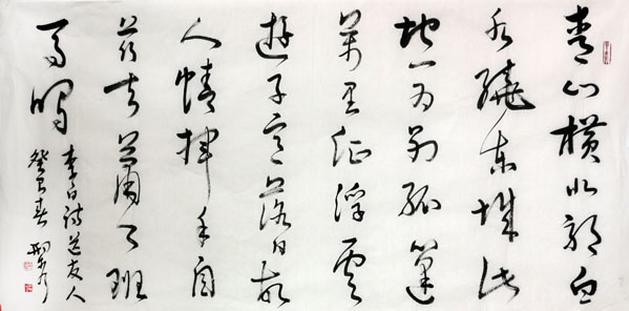 青山橫北郭白
水繞東城此
地一為別孤蓬
萬里征浮雲
遊子意落日故
人情揮手自
茲去蕭々班
馬鳴
李白詩送友人
癸巳春